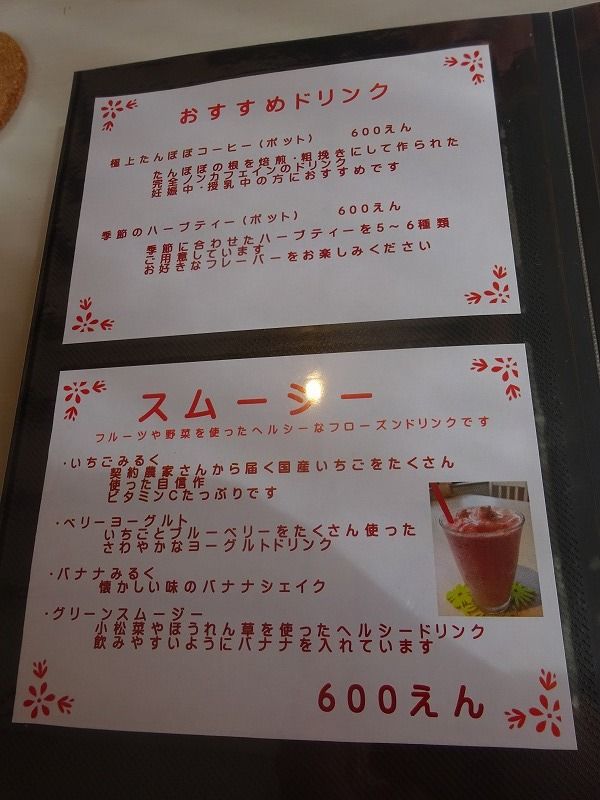 おすすめドリンク
極上たんぽぽコーヒー（ポット） 600えん
たんぽぽの根を焙煎・粗挽きにして作られた
完全ノンカフェインのドリンク
妊娠中・授乳中の方におすすめです
季節のハーブティー（ポット） 600えん
季節に合わせたハーブティーを5～6種類
ご用意しています
お好きなフレーバーをお楽しみください
スムージー
フルーツや野菜を使ったヘルシーなフローズンドリンクです
・いちごみるく
契約農家さんから届く国産いちごをたくさん
使った自信作
ビタミンCたっぷりです
・ベリーヨーグルト
いちごとブルーベリーをたくさん使った
さわやかなヨーグルトドリンク
・バナナみるく
懐かしい味のバナナシェイク
・グリーンスムージー
小松菜やほうれん草を使ったヘルシードリンク
飲みやすいようにバナナを入れています
600えん